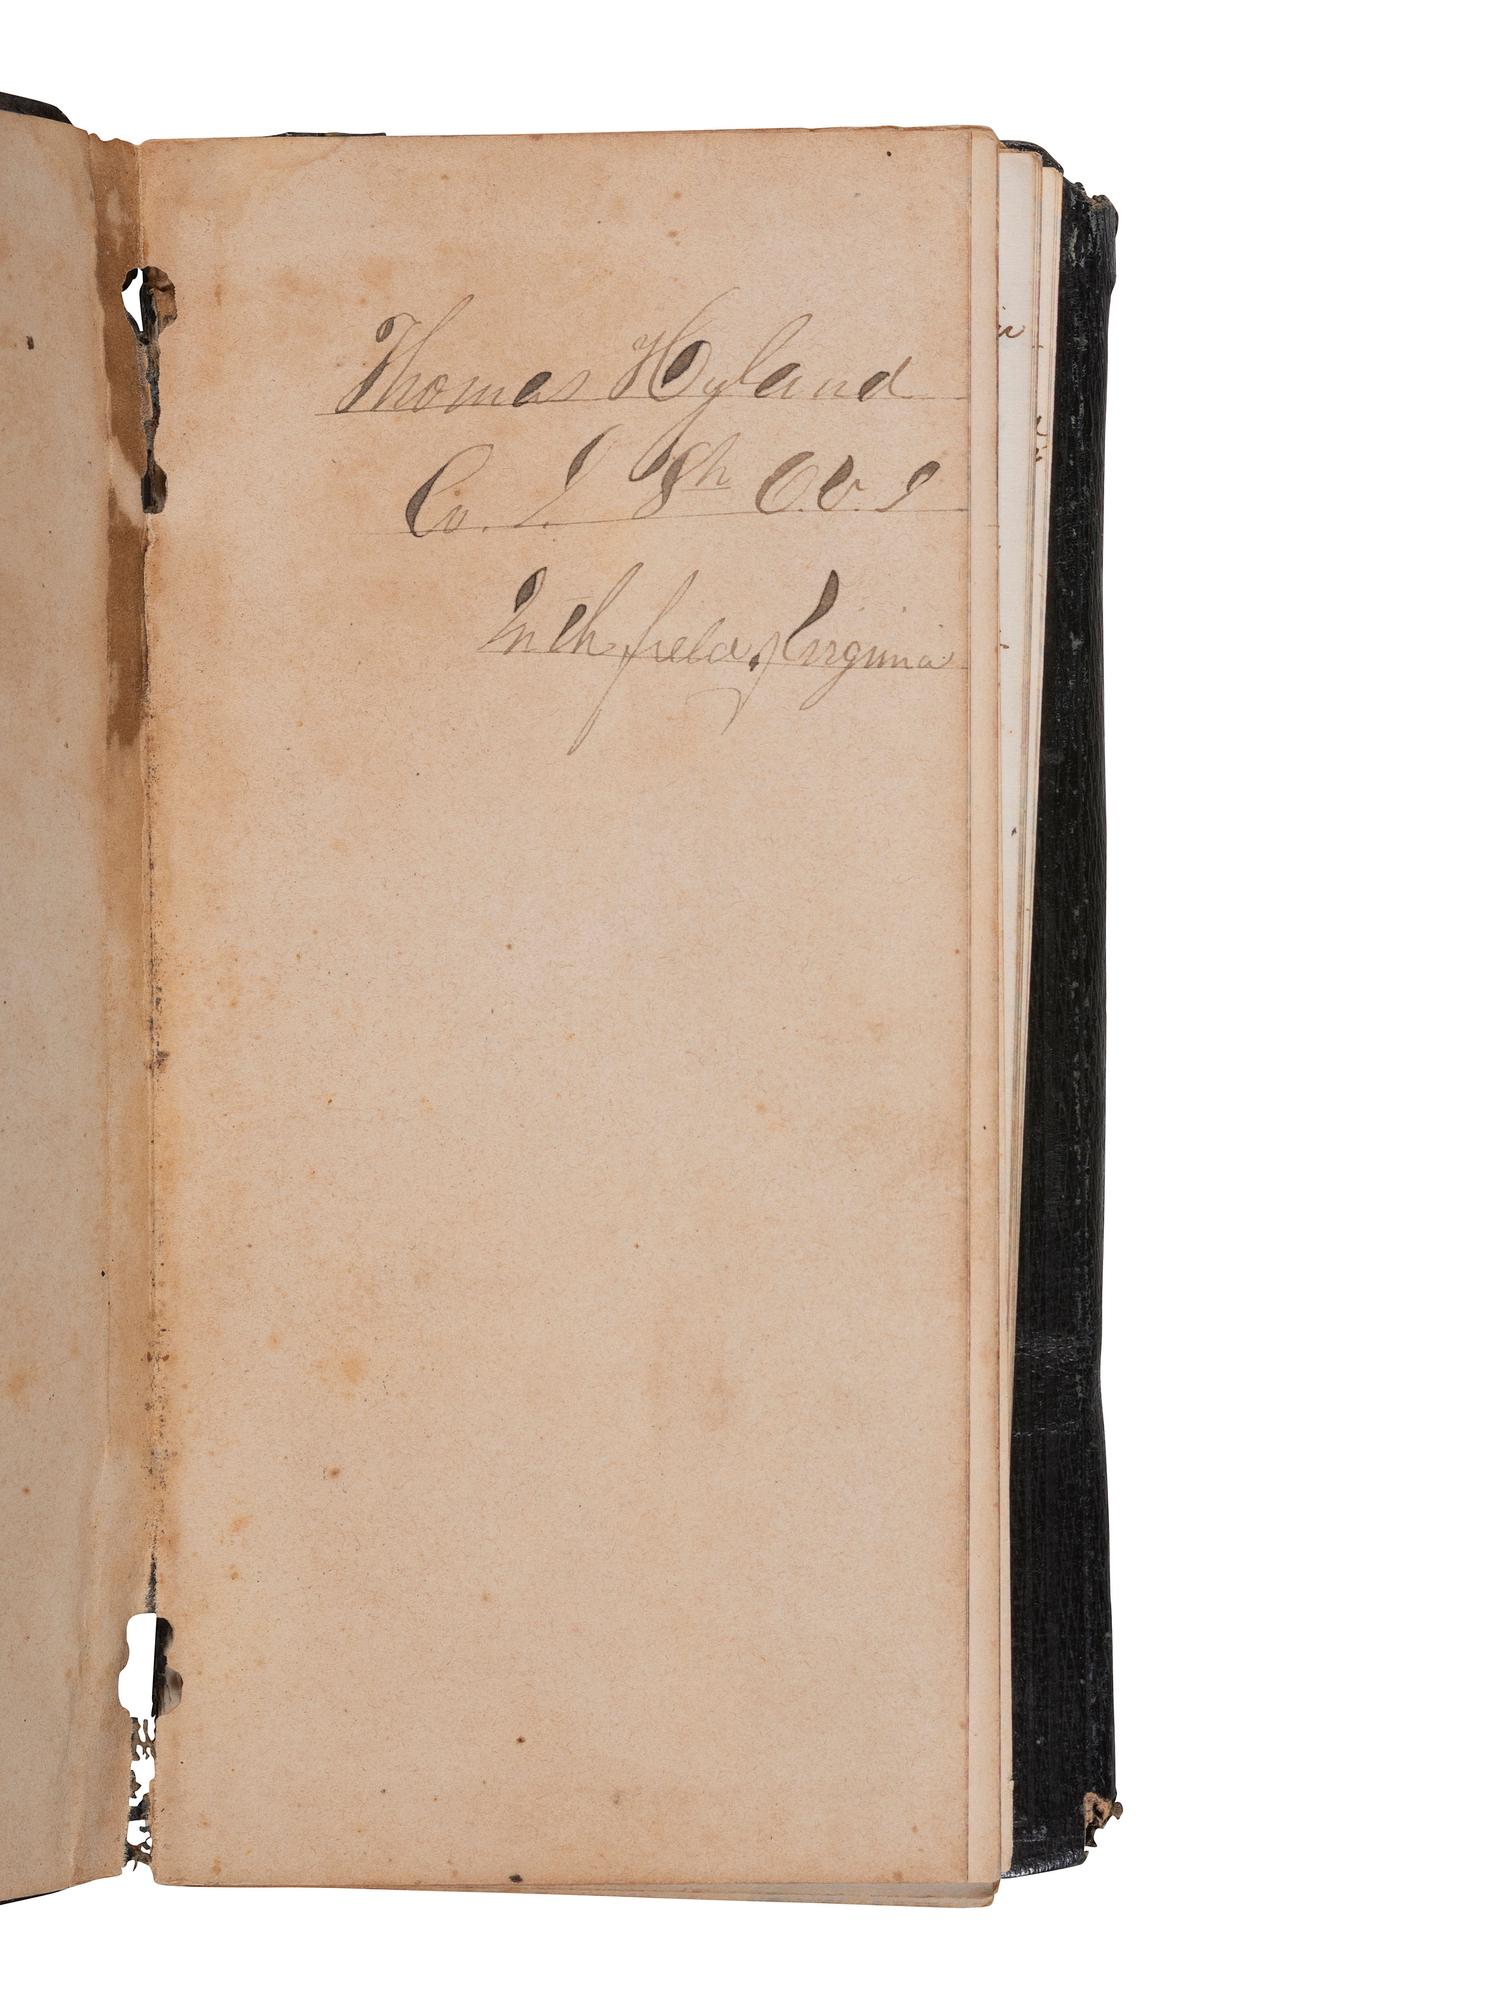 Thomas Hyland
Co. I. 8th O.V.I
In th field, Virginia